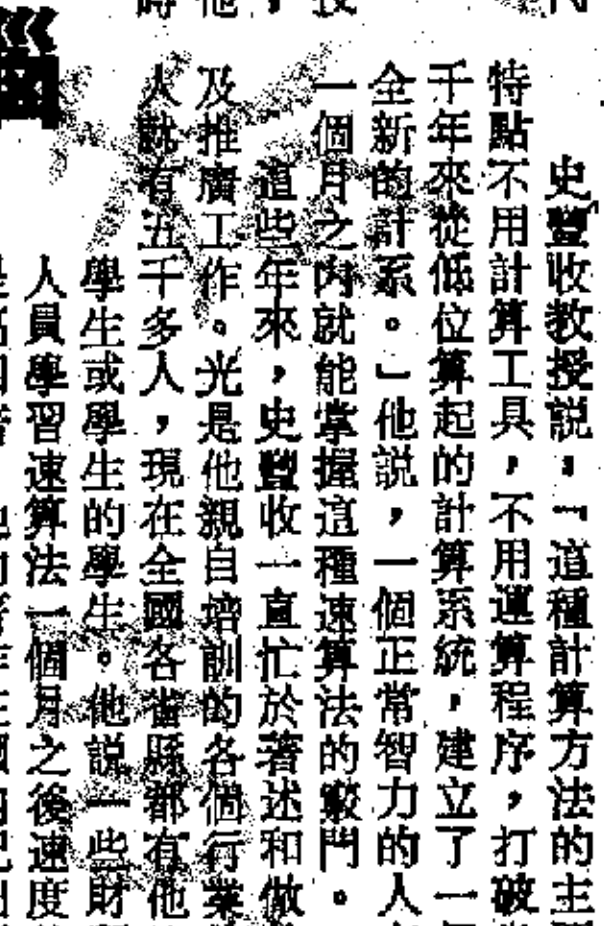 史豐收教授説，「這種計算方法的主
特點不用計算工具，不用運算程序，打破
千年來從低位算起的計算系統，建立了一
全新的計系。」他説，一個正常智力的人
一個月之内就能掌握這種速算法的竅門。
這些年來，史豐收一直忙於著述和做
及推廣工作。光是他親自培訓的各個行業
人就有五千多人，現在全國各省縣都有他
學生或學生的學生。他説一些財
人員學習速算法一個月之後速度